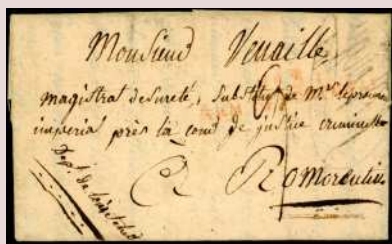 Monsieur Venaille
magistrat de sureté, substitut de Mr. le procureur
imperial près la cour de justice criminelle
a Romorentin
Dept. de loir et cher